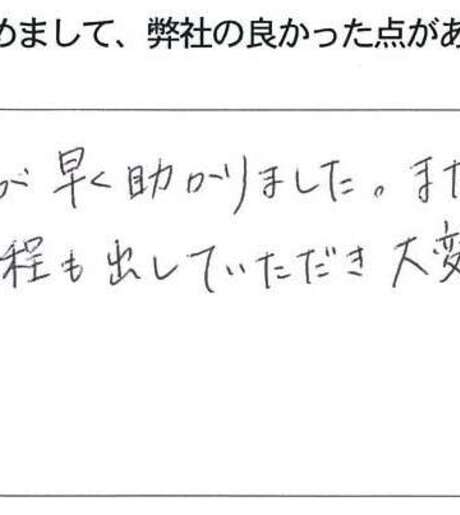 めまして、弊社の良かった点があ
が早く助かりました。また
程も出していただき大変